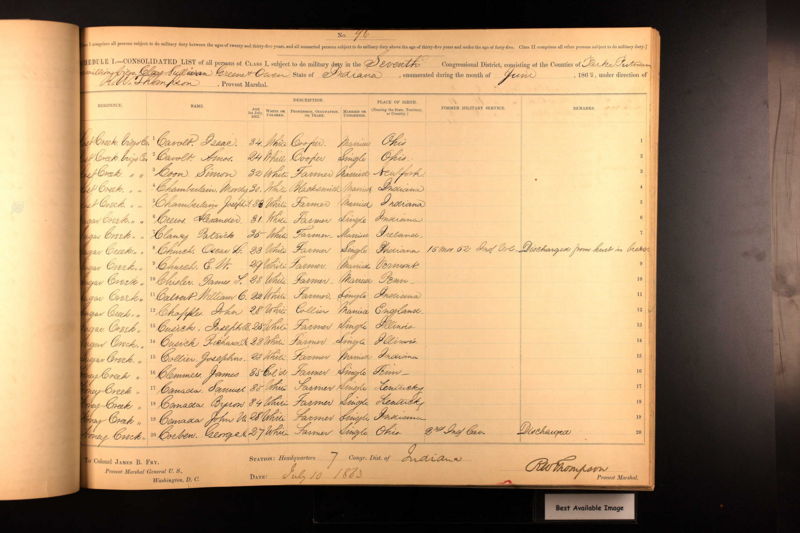 No. 96
Class I comprises all persons subject to do military duty between the ages of twenty and thirty-five years, and all unmarried persons subject to do military duty above the age of thirty-five years and under the age of forty-five. Class II comprises all other persons subject to do military duty.]
SCHEDULE I.—CONSOLIDATED LIST of all persons of CLASS I, subject to do military duty in the Seventh Congressional District, consisting of the Counties of Parke Putnam
Vermillion Vigo Clay Sullivan Greene & Owen State of Indiana, enumerated during the month of June, 1863, under direction of
R W Thompson, Provost Marshal.
RESIDENCE. NAME. DESCRIPTION. PLACE OF BIRTH. FORMER MILITARY SERVICE. REMARKS.
AGE 1st July, 1863. WHITE OR COLORED. PROFESSION, OCCUPATION, OR TRADE. MARRIED OR UNMARRIED. (Naming the State, Territory, or Country.)
Creek Vigo Co. 1 Cavolt Isaac 34 White Cooper Married Ohio 1
Creek Vigo Co 2 Cavolt Amos 24 White Cooper Single Ohio 2
Creek " " 3 Coon Simon 32 White Farmer Married New York 3
Creek " " 4 Chamberlain 30 White Blacksmith Married Indiana 4
Creek " " 5 Chamberlain Joseph 33 White Farmer Married Indiana 5
Sugar Creek " 6 Alexander 31 White Farmer Single Indiana 6
Sugar Creek " 7 Clancy Patrick 35 White Farmer Married Ireland 7
Sugar Creek " 8 Church Oscar H. 23 White Farmer Single Indiana 15 mos 52 Ind Vol. Discharged from 8
Sugar Creek " 9 Church E. W. 29 White Farmer Married Vermont 9
Sugar Creek " 10 James 28 White Farmer Married Penn 10
Sugar Creek " 11 Calvert William C. 22 White Farmer Single Indiana 11
Sugar Creek " 12 Chapple John 28 White Collier Married England 12
Sugar Creek " 13 Cusick Joseph 25 White Farmer Single Illinois 13
Sugar Creek " 14 Cusick Richard 23 White Farmer Single Illinois 14
Sugar Creek " 15 Collier Josephus 22 White Farmer Married Indiana 15
Honey Creek " 16 Clemmens James 35 Col'd Farmer Single Tenn 16
Honey Creek " 17 Canada Samuel 35 White Farmer Single Kentucky 17
Honey Creek " 18 Canada Byron 34 White Farmer Single Kentucky 18
Honey Creek " 19 Canada John 28 White Farmer Single Indiana 19
Honey Creek " 20 George 27 White Farmer Single Ohio Ind Cav Discharged 20
To Colonel JAMES B. FRY,
Provost Marshal General U. S.,
Washington, D. C.
STATION: Headquarters 7 Congr. Dist. of Indiana
DATE: July 10 1863
R W Thompson
Provost Marshal.
Best Available Image